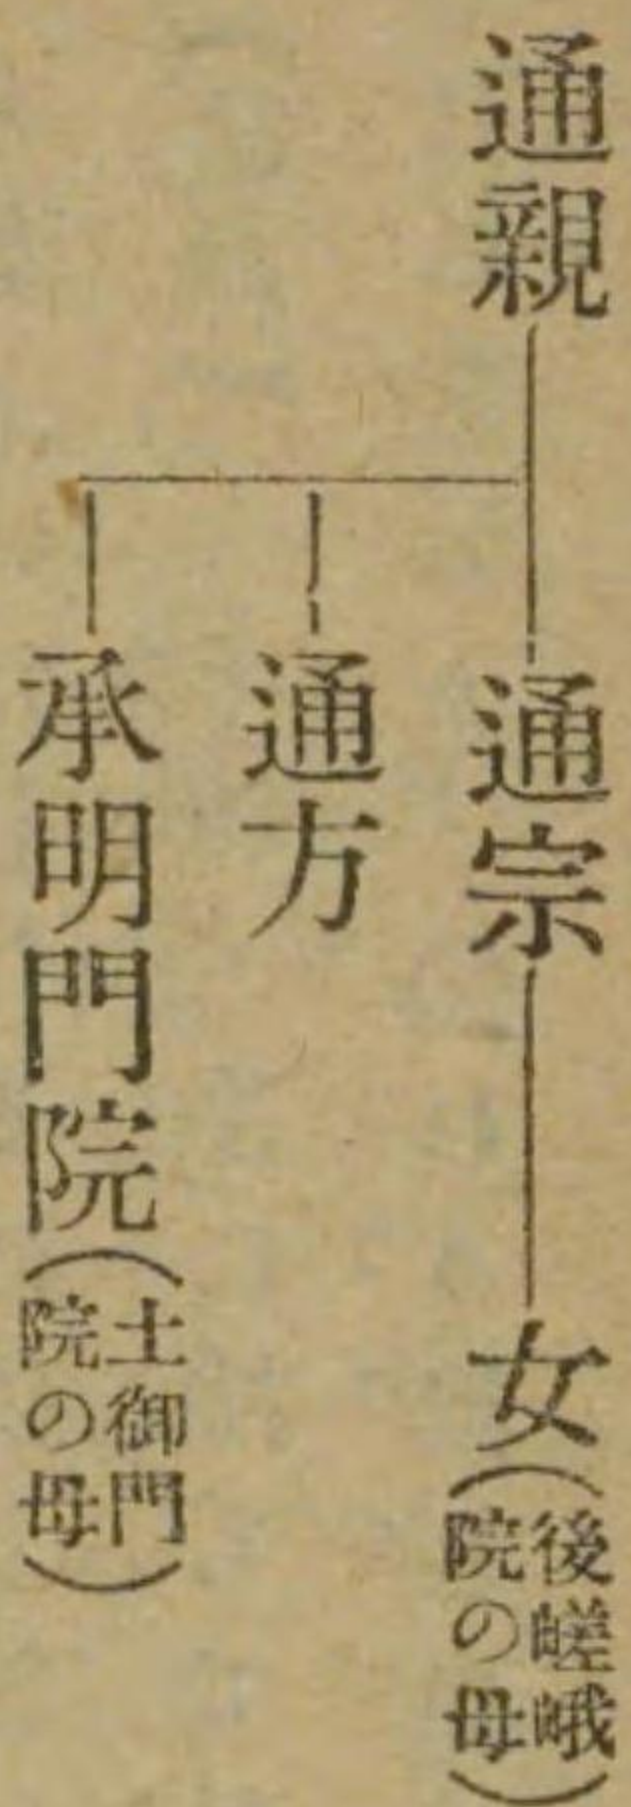 通親
通宗
女(後嵯峨院の母)
通方
承明門院(土御門院の母)